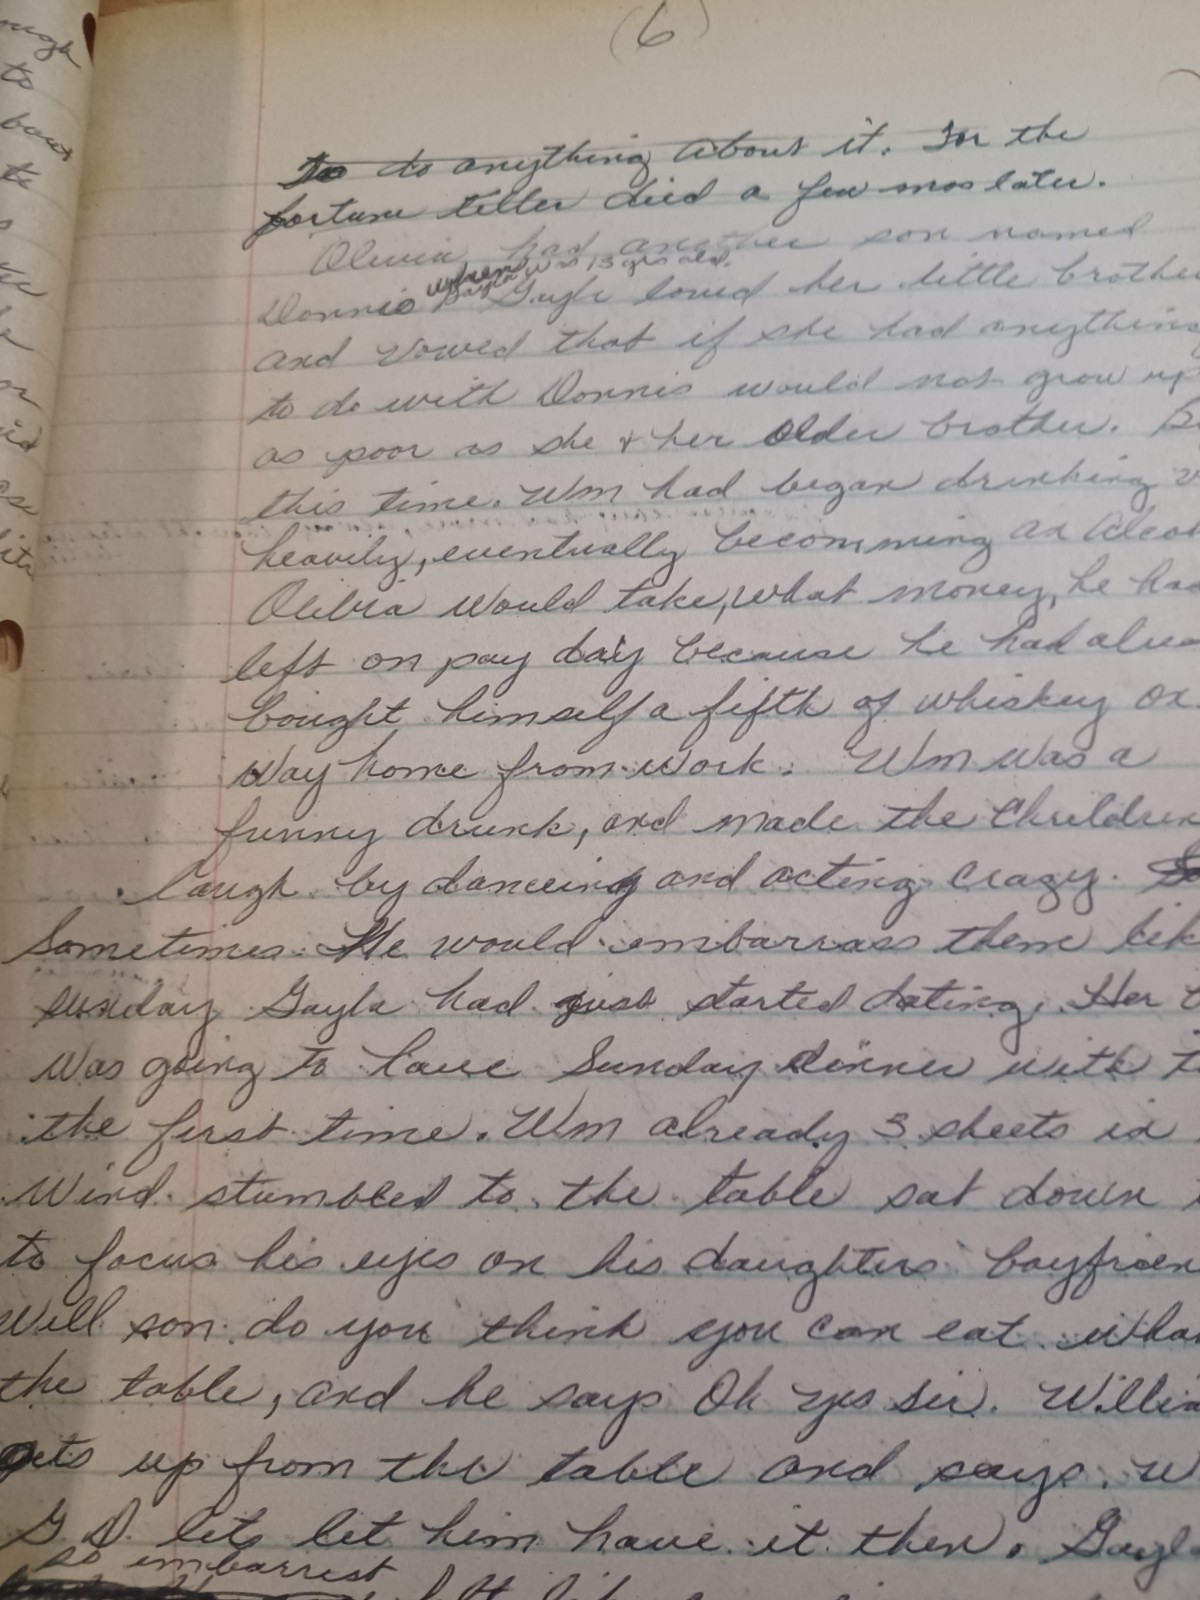 (6)
to do anything about it. For the
fortune teller died a few mos later.
Olivia had another son named
when Gayla was 13 yrs old.
Donnie Gayle loved her little brother
and vowed that if she had anything
to do with Donnie would not grow up
as poor as she & her older brother.
this time. Wm had began drinking
heavily, eventually becomming an
Olivia would take, what money, he
left on pay day because he had
bought himself a fifth of whiskey on
way home from work. Wm was a
funny drunk, and made the children
laugh by danceing and acting crazy.
Sometimes He would embarrass them
sunday Gayla had just started dating. Her
was going to have Sunday dinner with
the first time. Wm already 3 sheets in
Wind stumbled to the table sat down
to focus his eyes on his daughters
Well son do you think you can eat
the table, and he says Oh yes sir.
gets up from the table and says.
G D. lets let him have it then.
so embarrest